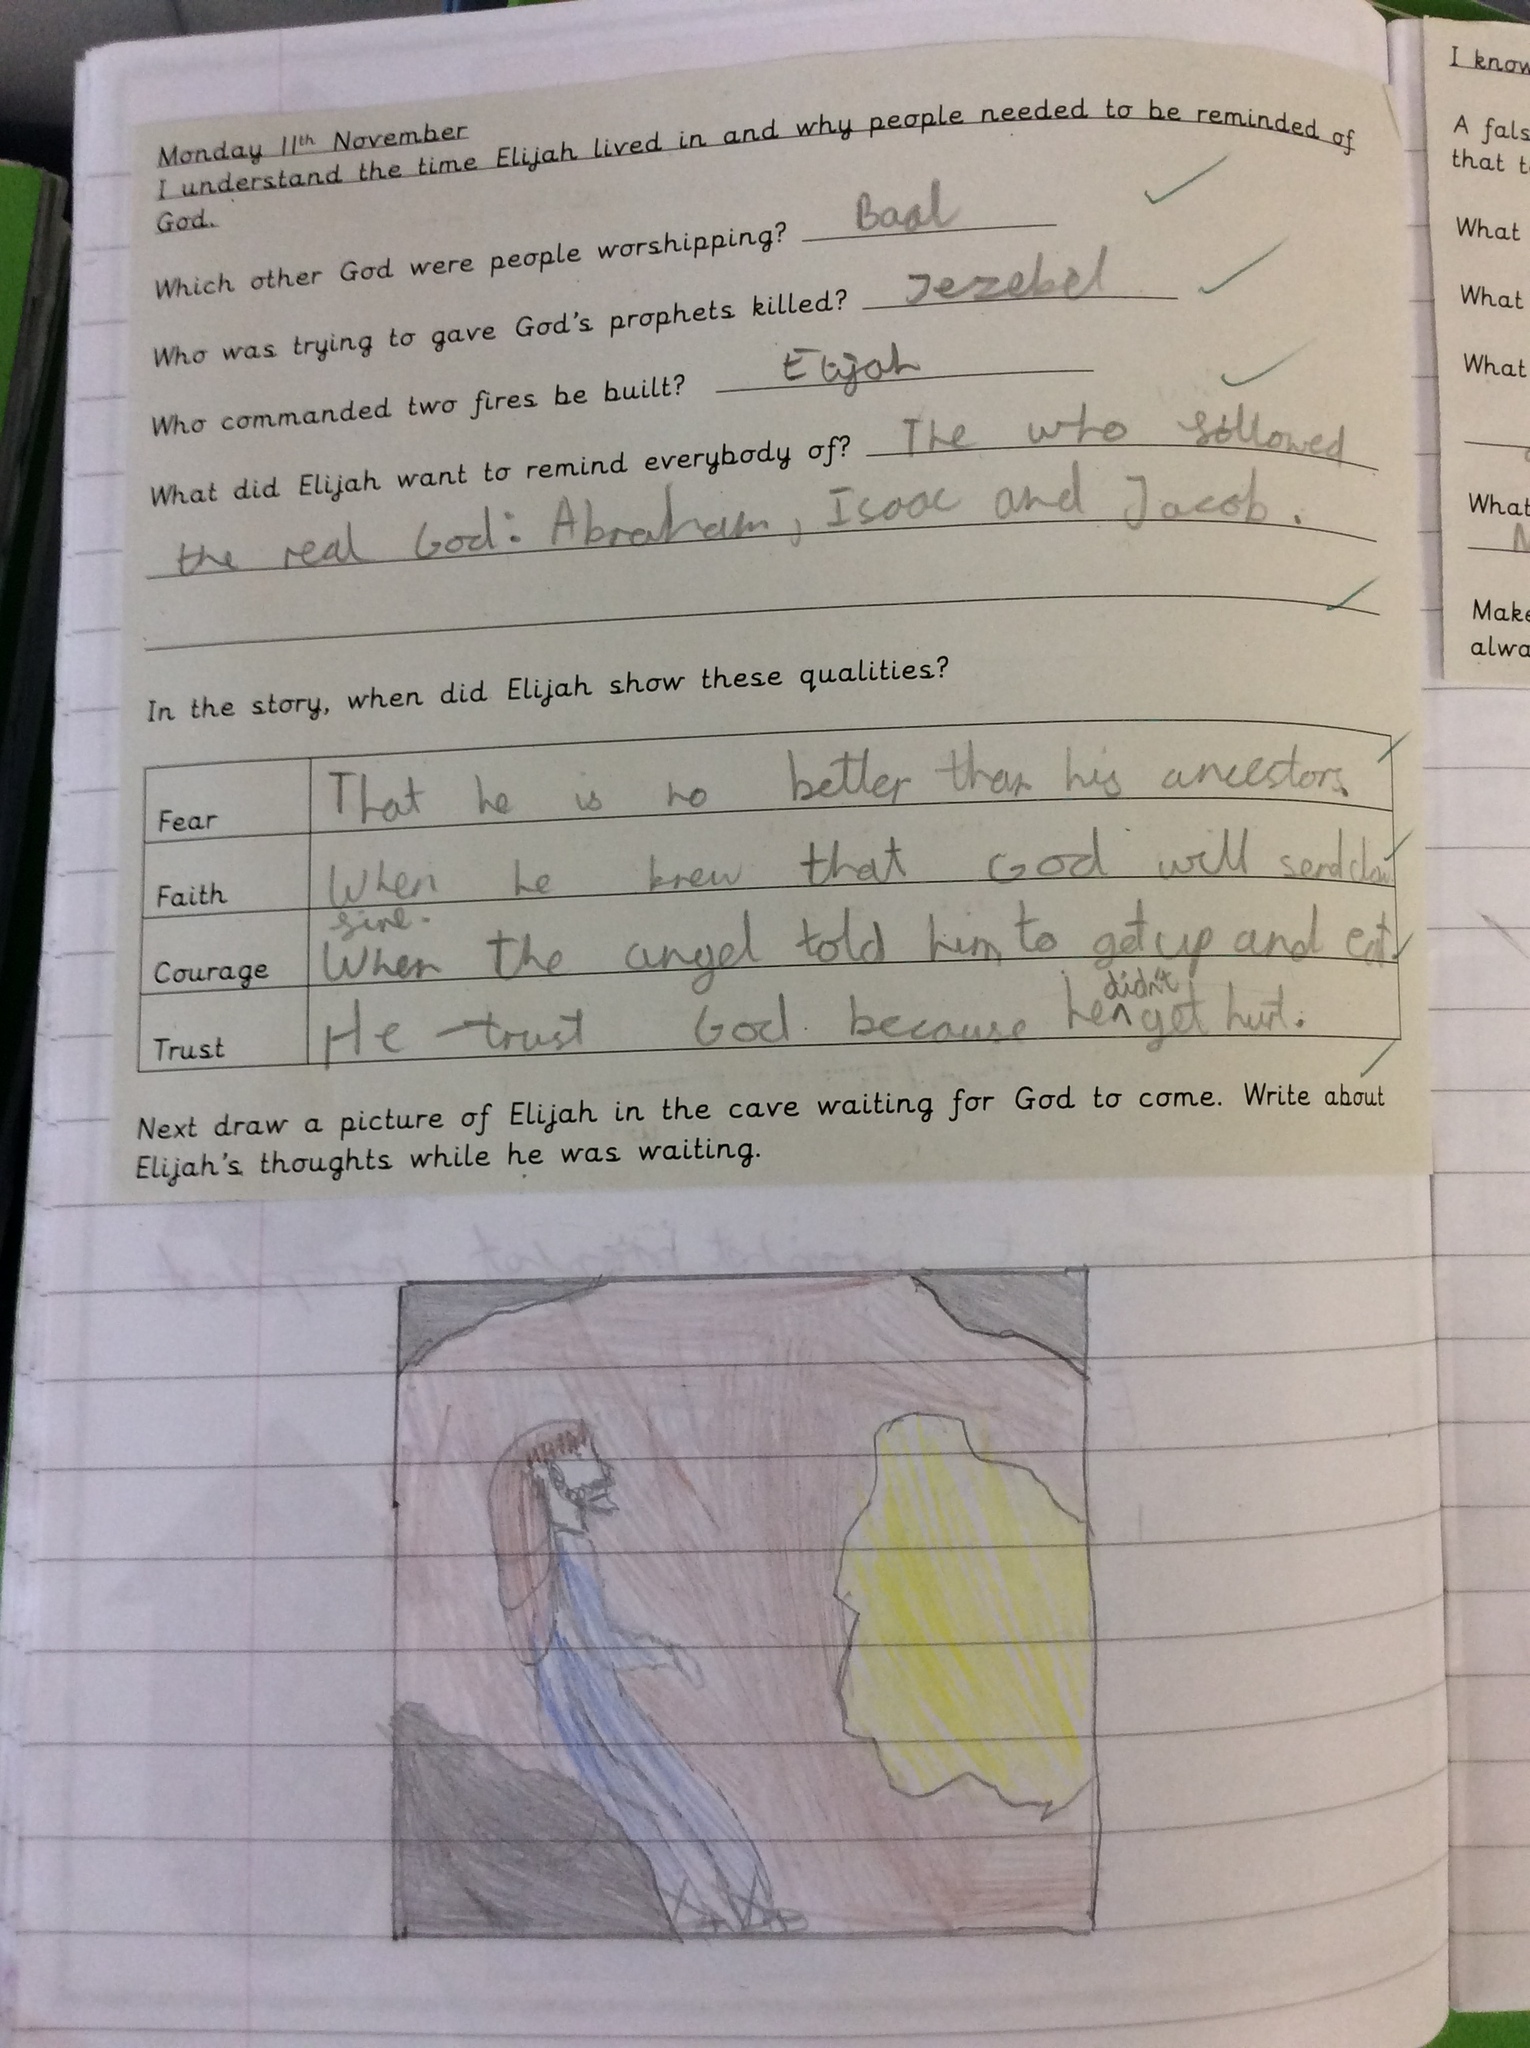 Monday 11th November
I understand the time Elijah lived in and why people needed to be reminded of
God.
Which other God were people worshipping? Baal
Who was trying to gave God's prophets killed? Jezebel
Who commanded two fires be built? Elijah
What did Elijah want to remind everybody of? The who followed
the real God: Abraham, Isaac and Jacob.
In the story, when did Elijah show these qualities?
Fear That he is no better than his ancestors.
Faith When he knew that God will send down
fire.
Courage When the angel told him to get up and eat.
Trust He trust God because he didn't get hurt.
Next draw a picture of Elijah in the cave waiting for God to come. Write about
Elijah's thoughts while he was waiting.
I know
A fals
that t
What
What
What
What
N
Make
alwa